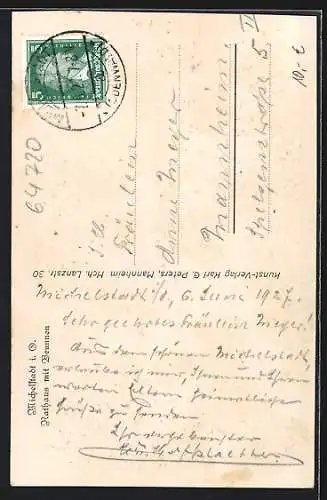 Michelstadt i. O.
Rathaus mit Brunnen
Kunst-Verlag Karl G. Peters, Mannheim Hch. Lanzstr. 30
S. H.
Fräulein
Anni Meyer
Mannheim.
5 II
64720
10,-€
Michelstadt i/O, 6. Juni 1927.
Sehr geehrtes Fräulein Meyer!
Aus dem schönen Michelstadt,
erlaube ich mir, Ihnen und Ihren
werten Eltern
Grüße zu senden
Ihr